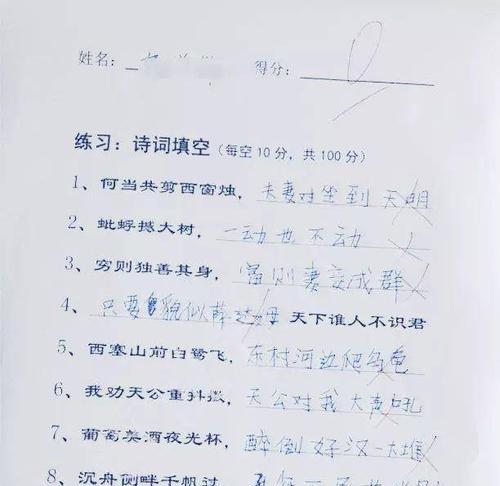 姓名： 得分：0
练习：诗词填空（每空10分，共100分）
1、何当共剪西窗烛，夫妻对坐到天明
2、蚍蜉撼大树，一动也不动
3、穷则独善其身，富则妻妾成群
4、只要貌似薛达姆 天下谁人不识君
5、西塞山前白鹭飞，东村河边爬乌龟
6、我劝天公重抖擞，天公对我大声吼
7、葡萄美酒夜光杯，醉倒好汉一大堆
8、沉舟侧畔千帆过，